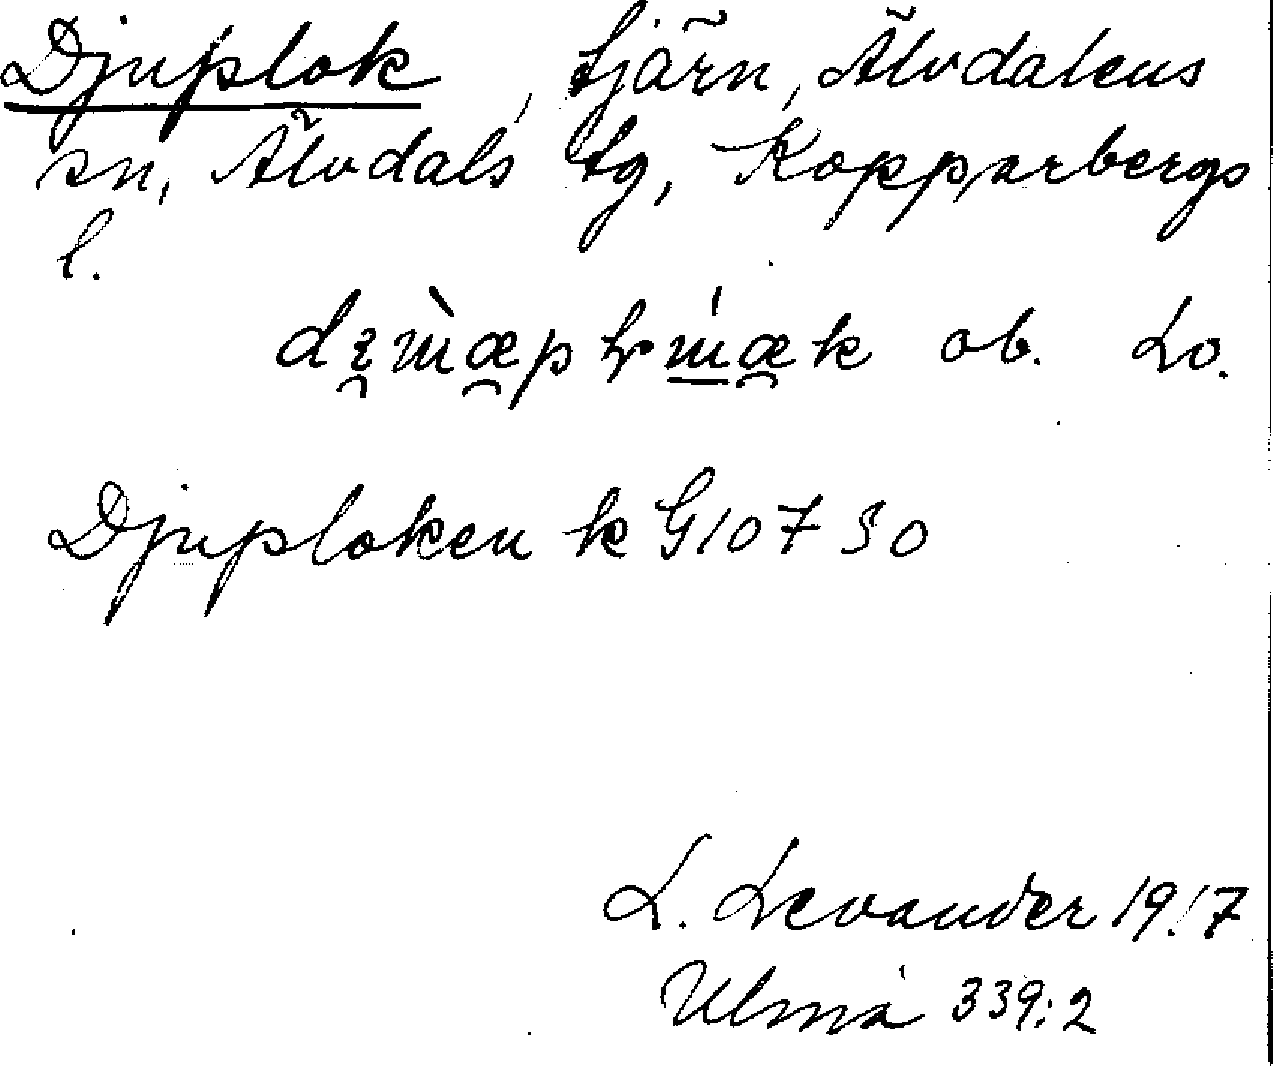 Djuplok, tjärn, Älvdalens
sn, Älvdals tg, Kopparbergs
l.
ob. Lo.
Djuploken k G10730
L. Levander 1917
Ulma 339:2